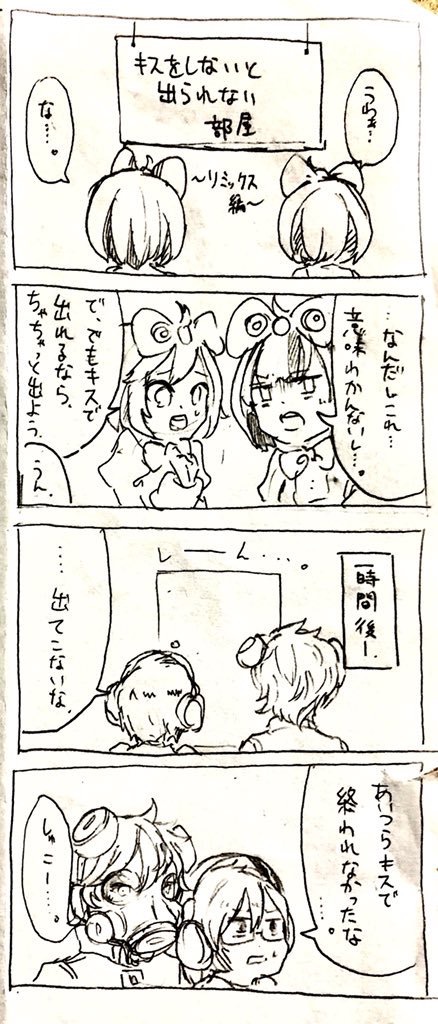 キスをしないと
出られない
部屋
うわぁ…
な……。
〜リミックス
編〜
…なんだしこれ…
意味わかんないし…。
で、でもキスで
出れるなら、
ちゃちゃっと出よう。
うん。
一時間後ー
しーん…。
……出てこないな。
あいつらキスで
終われなかったな
……。
しゅこー……。